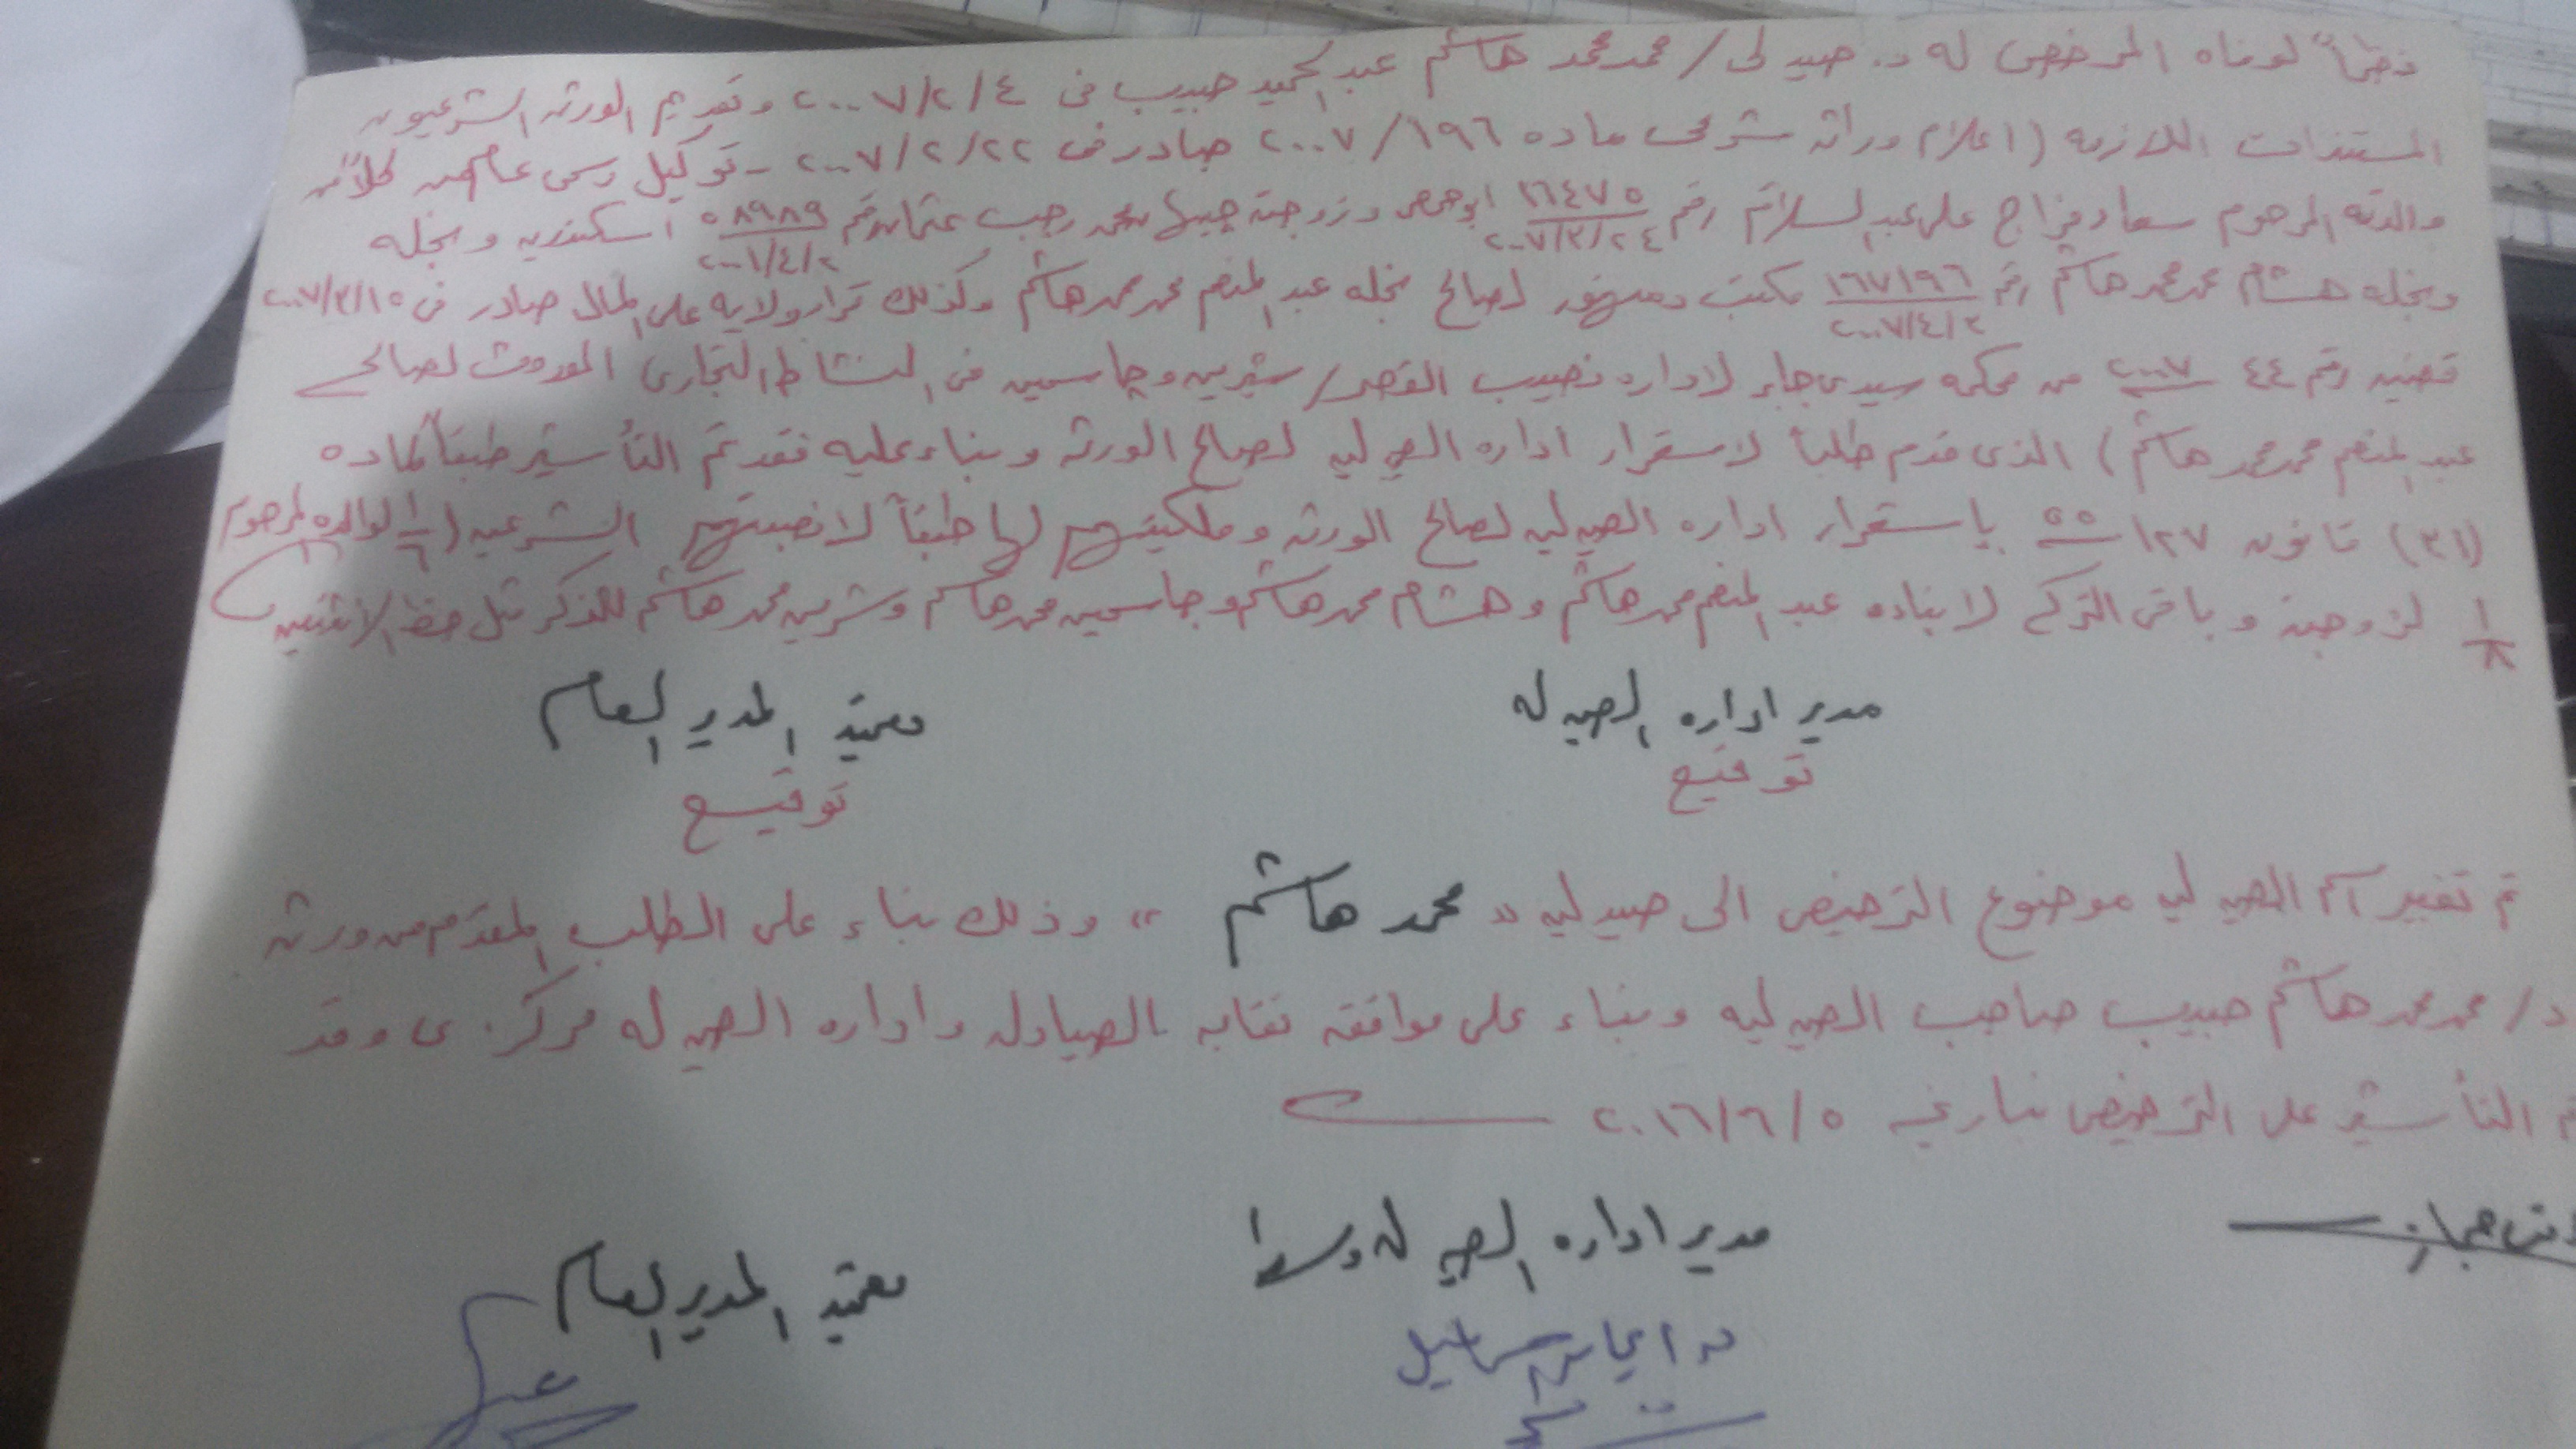 نظراً لوفاه المرخص له د. صيدلى / محمد محمد هاشم عبد الحميد حبيب فى ٤/٢/٢٠٠٧ وتقديم الورثه الشرعيون
المستندات اللازمه (اعلام وراثه شرعى ماده ١٩٦/٢٠٠٧ صادر فى ٢٢/٢/٢٠٠٧ - توكيل رسمى عام من كلاً من
والدته المرحوم سعاد فراج على عبد السلام رقم ١٦٤٧٥ ٢٤/٣/٢٠٠٧ ابوحمص وزوجته محمد رجب عثمان رقم ٨٩٨٩ ٢/٤/٢٠٠١ اسكندريه ونجله
ونجله هشام محمد محمد هاشم رقم ١٦٧١٩٦ ٢/٤/٢٠٠٧ مكتب دمنهور لصالح نجله عبد المنعم محمد محمد هاشم وكذلك قرار ولايه على المال صادر فى ١٥/٣/٢٠٠٧
قضيه رقم ٤٤ ٢٠٠٧ من محكمه سيدى جابر لاداره نصيب القصر / شيرين وجاسمين فى النشاط التجارى الموروث لصالح
عبد المنعم محمد محمد هاشم) الذى قدم طلباً لاستقرار اداره الصيدليه لصالح الورثه وبناء عليه فقد تم التأشير طبقاً لماده
(٣١) قانون ١٢٧ ٥٥ باستقرار اداره الصيدليه لصالح الورثه وملكيتهم لها طبقاً لانصبتهم الشرعيه (١/٦ لوالده المرحوم
١/٨ لزوجته وباقى التركه لابناءه عبد المنعم محمد هاشم وهشام محمد هاشم وجاسمين محمد هاشم وشرين محمد هاشم للذكر مثل حظ الانثيين)
مدير اداره الصيدله
يعتمد المدير العام
توقيع
توقيع
تم تغيير اسم الصيدليه موضوع الترخيص الى صيدليه " محمد هاشم " وذلك بناء على الطلب المقدم من ورثه
د/ محمد محمد هاشم حبيب صاحب الصيدليه وبناء على موافقه نقابه الصيادله واداره الصيدله مركزى وقد
التأشير على الترخيص بتاريخ ٥/٦/٢٠١٦
حجازى
مدير اداره الصيدله
يعتمد المدير العام